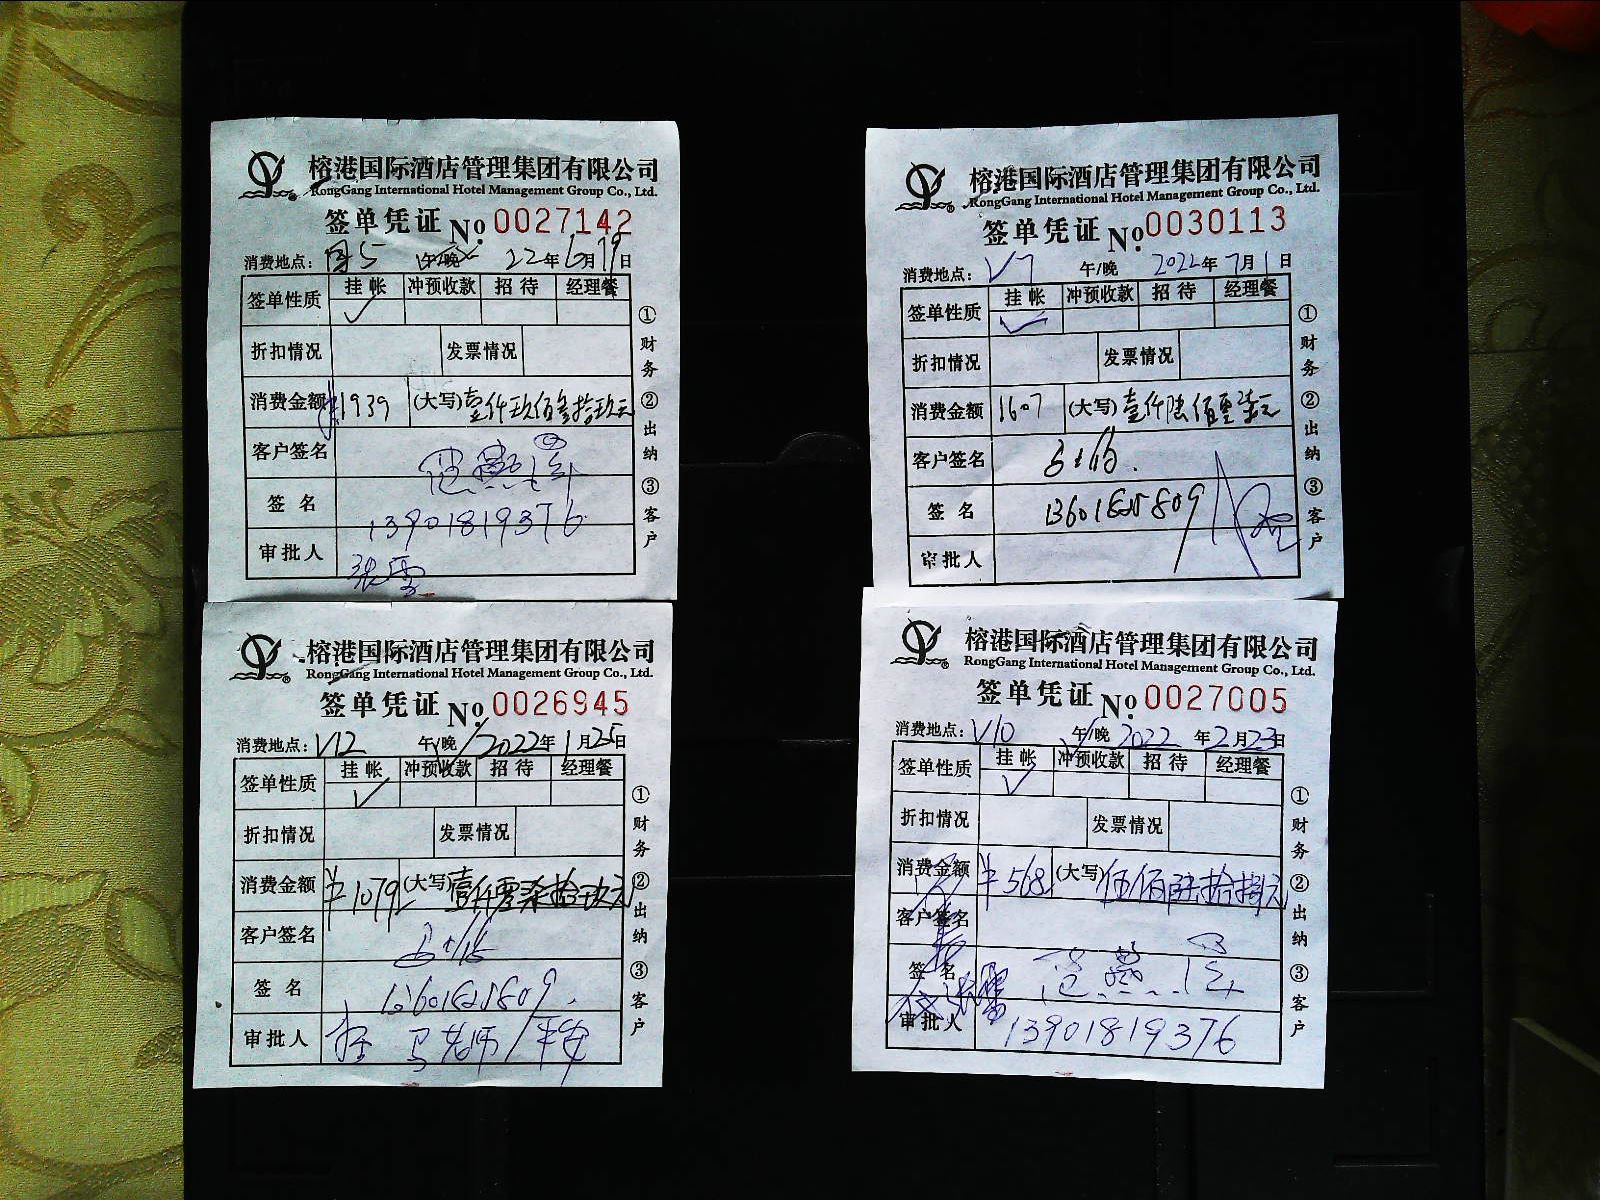 榕港国际酒店管理集团有限公司
RongGang International Hotel Management Group Co., Ltd.
签单凭证 No. 0027142
消费地点: 5 午/晚 22年6月19日
签单性质 挂帐 冲预收款 招待 经理餐
✓
折扣情况 发票情况
消费金额 ¥1939 (大写) 壹仟玖佰叁拾玖元
客户签名
签名 13901819376
审批人 张雪
①财务 ②出纳 ③客户
榕港国际酒店管理集团有限公司
RongGang International Hotel Management Group Co., Ltd.
签单凭证 No. 0030113
消费地点: V7 午/晚 2022年7月1日
签单性质 挂帐 冲预收款 招待 经理餐
✓
折扣情况 发票情况
消费金额 1607 (大写) 壹仟陆佰零柒元
客户签名
签名 13601825809
审批人
①财务 ②出纳 ③客户
榕港国际酒店管理集团有限公司
RongGang International Hotel Management Group Co., Ltd.
签单凭证 No. 0026945
消费地点: V12 午/晚 2022年1月25日
签单性质 挂帐 冲预收款 招待 经理餐
✓
折扣情况 发票情况
消费金额 ¥1079 (大写) 壹仟零柒拾玖元
客户签名
签名 13601825809
审批人 马老师
①财务 ②出纳 ③客户
榕港国际酒店管理集团有限公司
RongGang International Hotel Management Group Co., Ltd.
签单凭证 No. 0027005
消费地点: V10 午/晚 2022年2月23日
签单性质 挂帐 冲预收款 招待 经理餐
✓
折扣情况 发票情况
消费金额 ¥568 (大写) 伍佰陆拾捌元
客户签名
签名
审批人 13901819376
①财务 ②出纳 ③客户